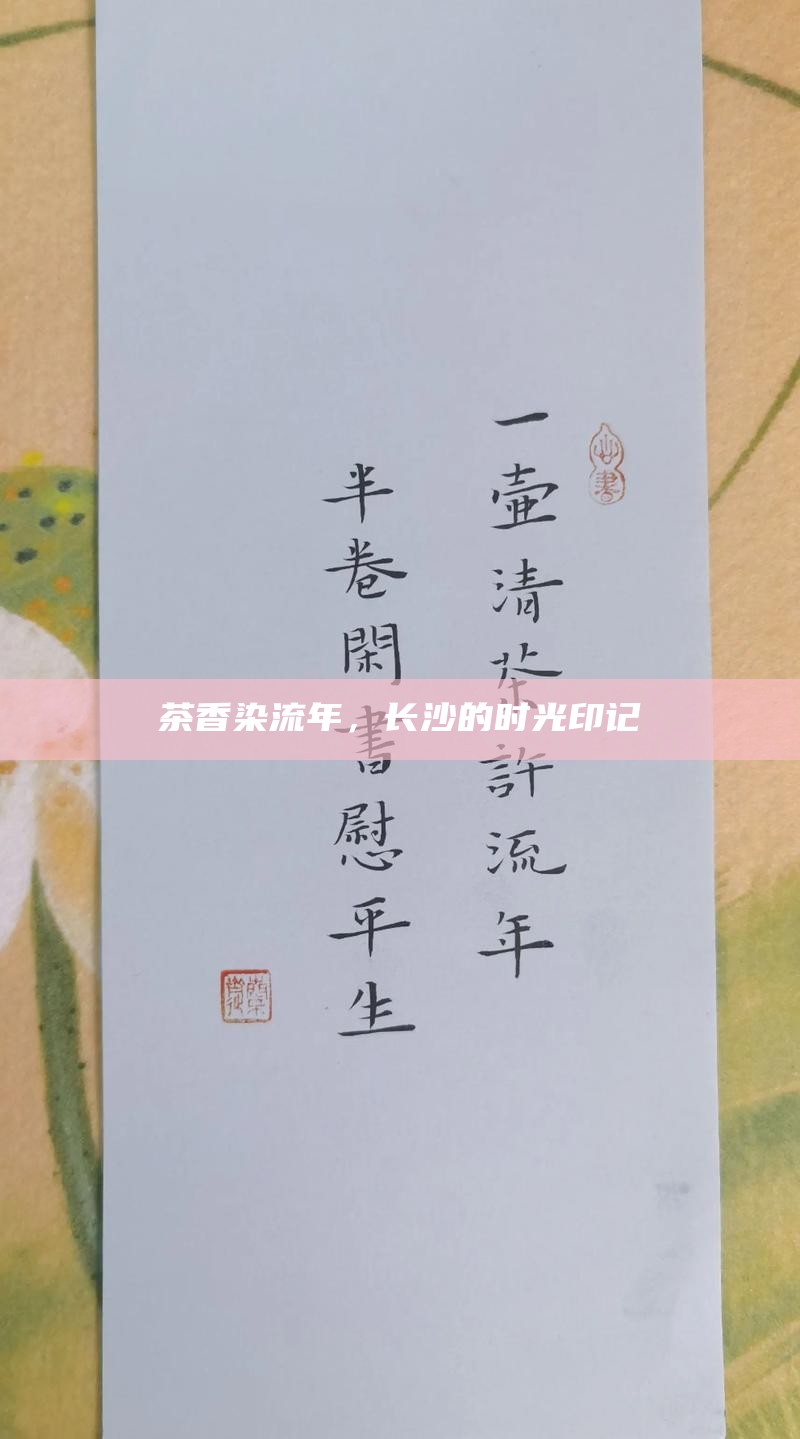 一壶清茶許流年
半卷閑書慰平生
茶香染流年，长沙的时光印记